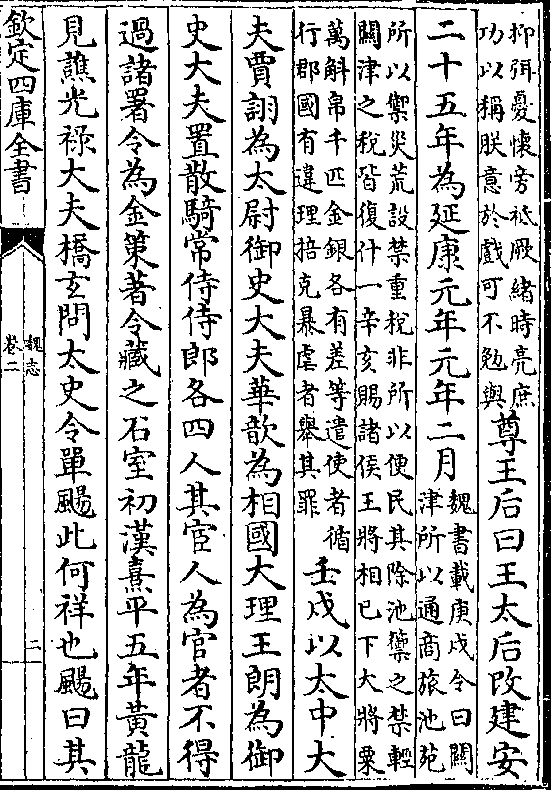 抑弭憂懷旁祗厥緒時亮庶
功以稱朕意於戲可不勉與
尊王后曰王太后改建安
二十五年為延康元年元年二月
魏書載庚戌令曰關
津所以通商旅池苑
所以禦災荒設禁重稅非所以便民其除池籞之禁輕
關津之稅皆復什一辛亥賜諸侯王將相已下大將粟
萬斛帛千匹金銀各有差等遣使者循
行郡國有違理掊克暴虐者舉其罪
壬戌以太中大
夫賈詡為太尉御史大夫華歆為相國大理王朗為御
史大夫置散騎常侍侍郎各四人其宦人為官者不得
過諸署令為金策著令藏之石室初漢熹平五年黃龍
見譙光祿大夫橋玄問太史令單颺此何祥也颺曰其
欽定四庫全書
魏志
卷二
二